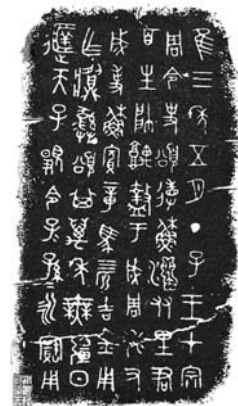 隹三年五月丁子王才宗
周令史頌省穌友里君
百生帥䚄盩于成周休又
成事穌賓章馬四匹吉金用
乍䵼彝頌其萬年無疆日
天子顯令子孫永寶用